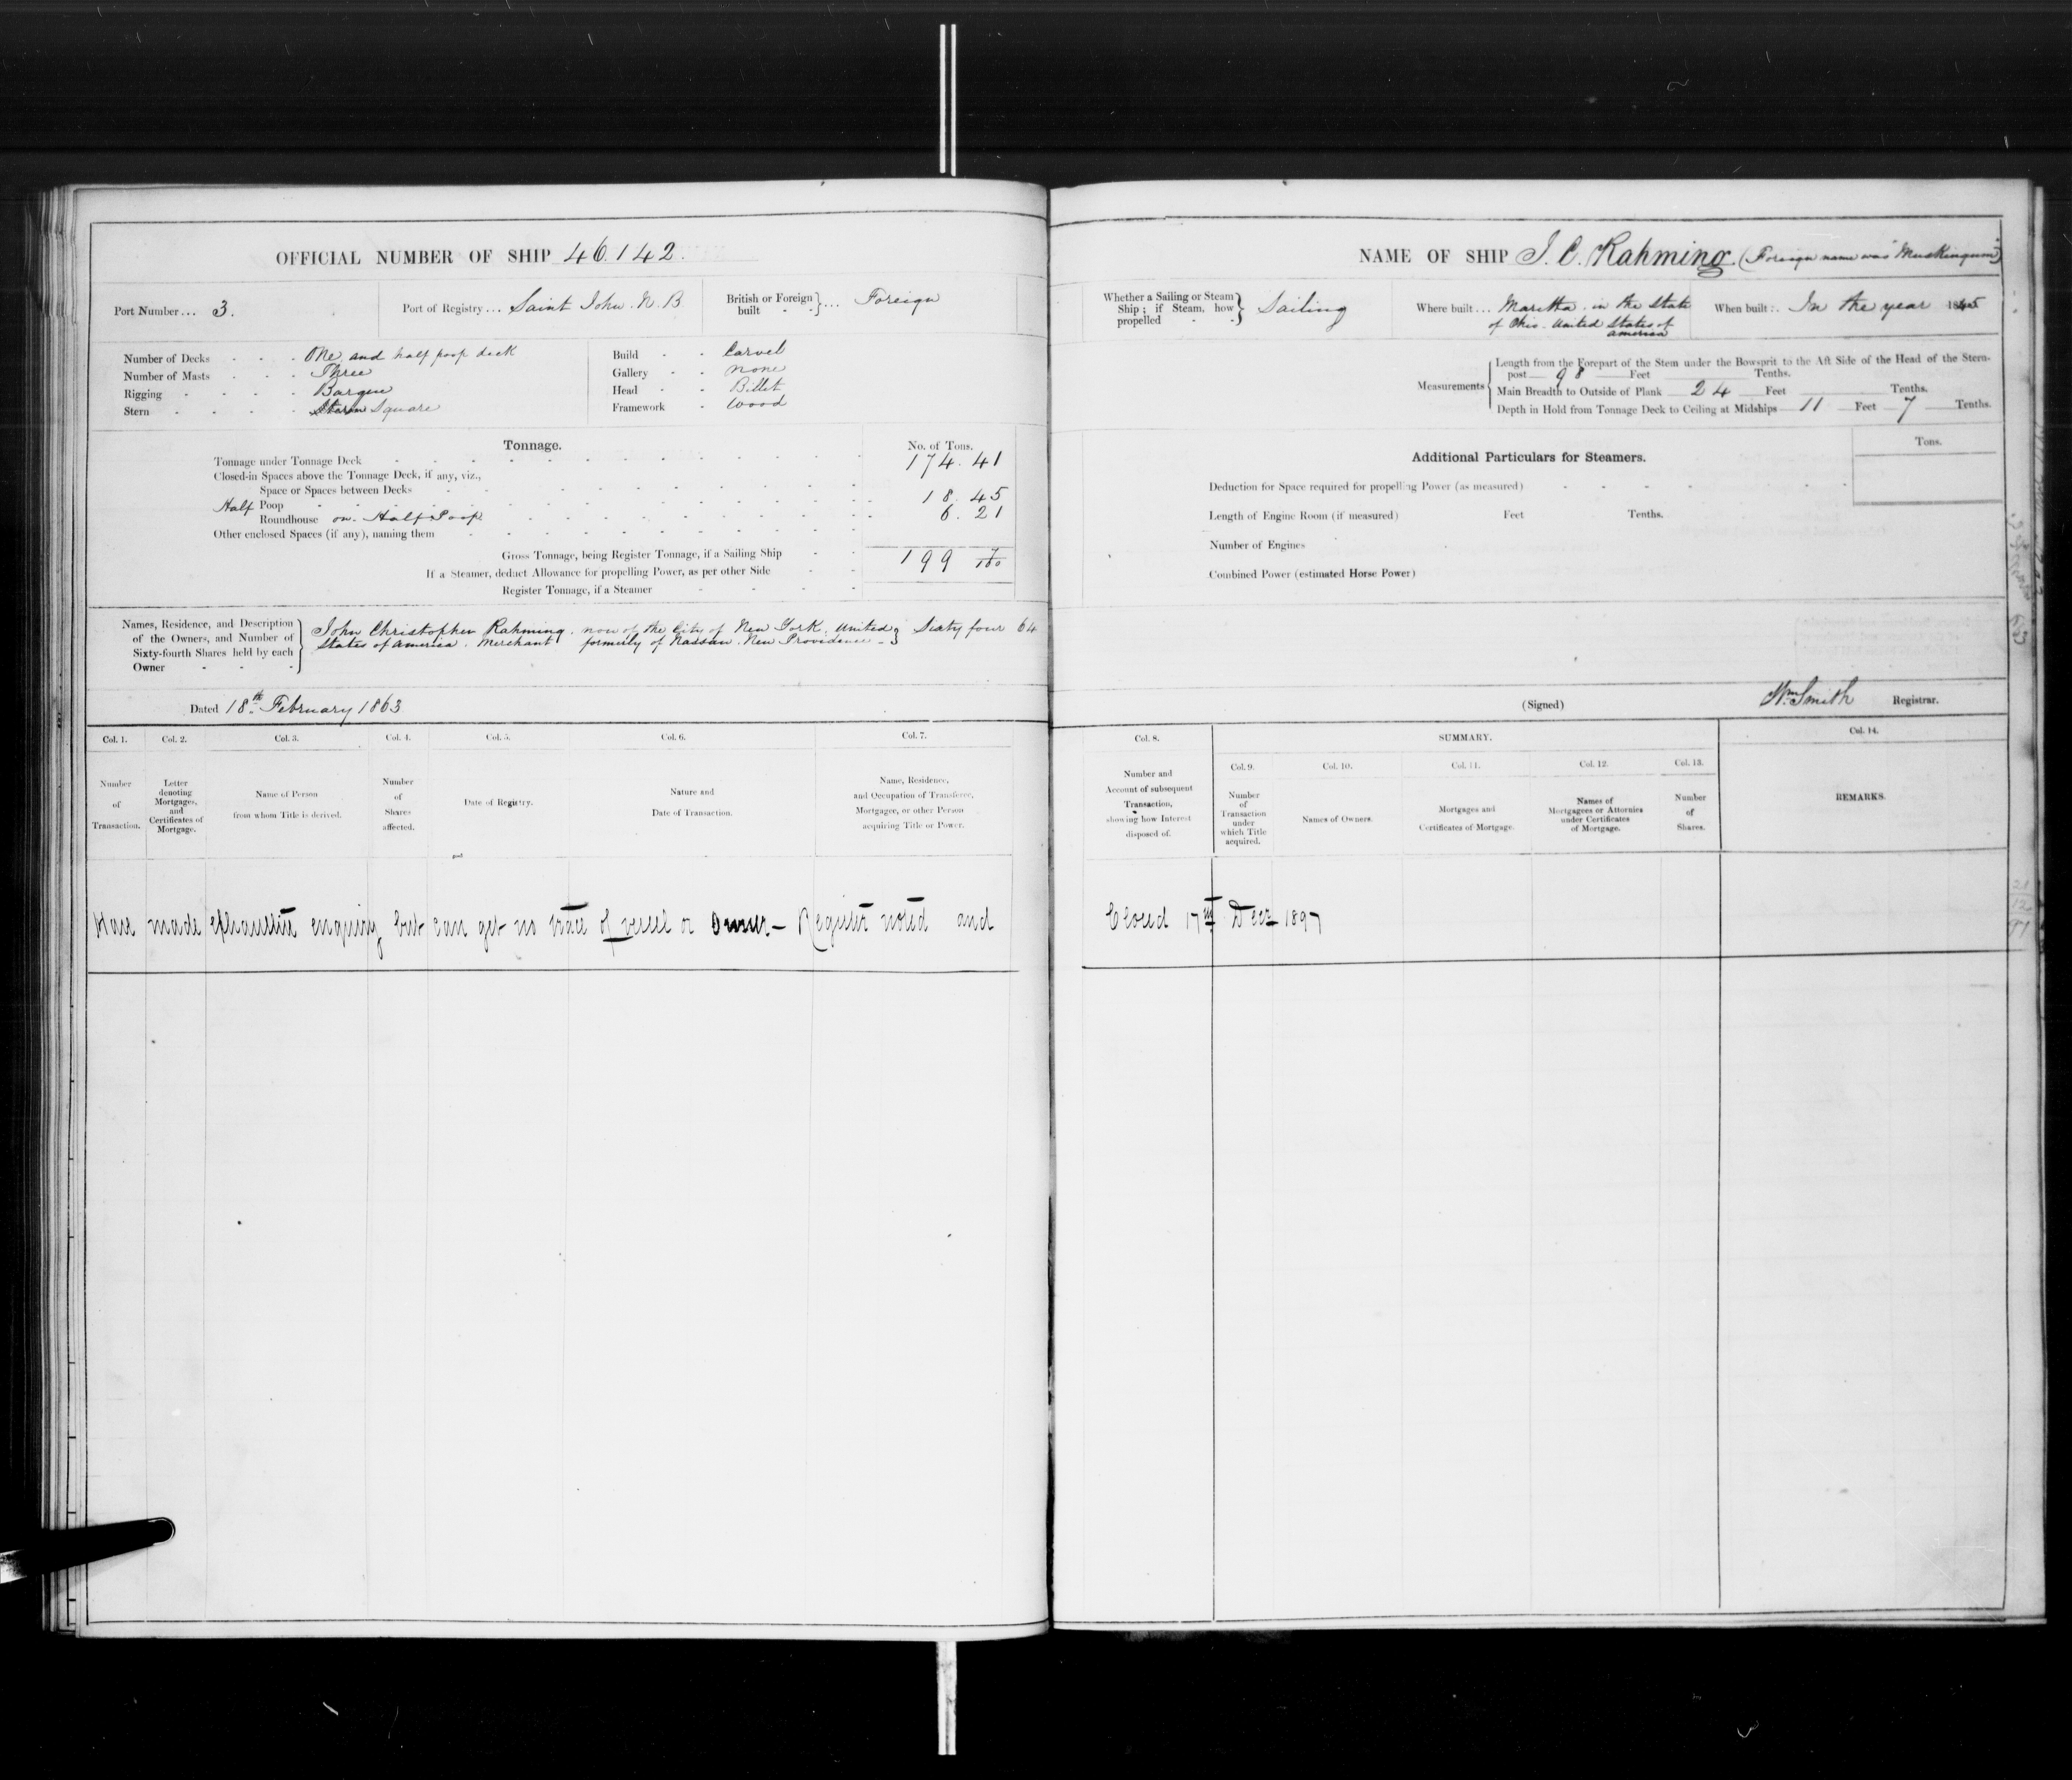 OFFICIAL NUMBER OF SHIP 46.142.
Port Number... 3.
Port of Registry... Saint John. N. B
British or Foreign built - - } ... Foreign
Number of Decks - - - One and half poop deck
Number of Masts - - - Three
Rigging - - - - Barque
Stern - - - - Square
Build - - Carvel
Gallery - - none
Head - - Billet
Framework - Wood
Tonnage.
No. of Tons.
Tonnage under Tonnage Deck 174.41
Closed-in Spaces above the Tonnage Deck, if any, viz.,
Space or Spaces between Decks
Half Poop 18.45
Roundhouse on Half Poop. 6.21
Other enclosed Spaces (if any), naming them
Gross Tonnage, being Register Tonnage, if a Sailing Ship 199 7/100
If a Steamer, deduct Allowance for propelling Power, as per other Side
Register Tonnage, if a Steamer
Names, Residence, and Description
of the Owners, and Number of
Sixty-fourth Shares held by each
Owner
John Christopher Rahming. now of the City of New York. United } Sixty four 64
States of America. Merchant formerly of Nassau. New Providence -
Dated 18th February 1863
Col. 1. Col. 2. Col. 3. Col. 4. Col. 5. Col. 6. Col. 7.
Number of Transaction.
Letter denoting Mortgages, and Certificates of Mortgage.
Name of Person from whom Title is derived.
Number of Shares affected.
Date of Registry.
Nature and Date of Transaction.
Name, Residence, and Occupation of Transferee, Mortgagee, or other Person acquiring Title or Power.
Have made exhaustive enquiry but can get no trace of vessel or Owner - Register noted and
NAME OF SHIP J. C. Rahming. (Foreign name was "Muskingum")
Whether a Sailing or Steam Ship; if Steam, how propelled - - } Sailing
Where built... Maretta. in the State
of Ohio. United States of
America
When built.. In the year 1845
Measurements
Length from the Forepart of the Stem under the Bowsprit to the Aft Side of the Head of the Stern-
post 98 Feet Tenths.
Main Breadth to Outside of Plank 24 Feet Tenths.
Depth in Hold from Tonnage Deck to Ceiling at Midships 11 Feet 7 Tenths.
Additional Particulars for Steamers.
Tons.
Deduction for Space required for propelling Power (as measured)
Length of Engine Room (if measured) Feet Tenths.
Number of Engines
Combined Power (estimated Horse Power)
(Signed) Wm. Smith Registrar.
Col. 8. SUMMARY. Col. 14.
Col. 9. Col. 10. Col. 11. Col. 12. Col. 13.
Number and Account of subsequent Transaction, showing how Interest disposed of.
Number of Transaction under which Title acquired.
Names of Owners.
Mortgages and Certificates of Mortgage.
Names of Mortgagees or Attornies under Certificates of Mortgage.
Number of Shares.
REMARKS.
Closed 17th Decr 1897